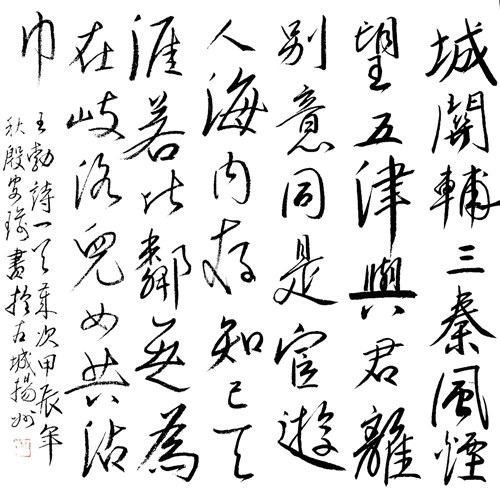 城闕輔三秦風煙
望五津與君離
別意同是宦遊
人海內存知己天
涯若比鄰無為
在岐路兒女共沾
巾
王勃詩一首歲次甲辰年
秋殷書於古城揚州